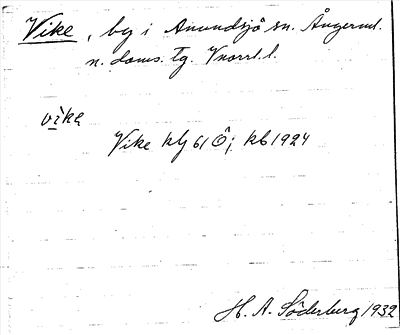 Vike, by i Anundsjö sn. Ångerml.
n. doms. tg. Vnorrl. l.
vìkȩ
Vike klg 61 Ö; kb 1924
H. A. Söderberg 1932